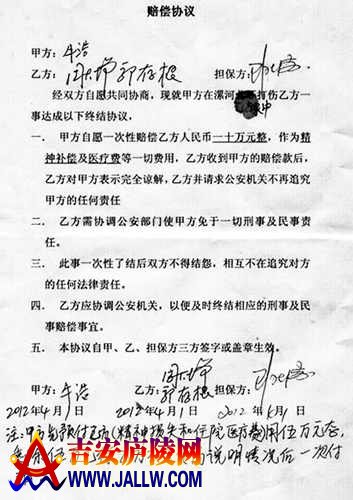 赔偿协议
甲方：牛浩
乙方：郭存根 担保方：
经双方自愿共同协商，现就甲方在漯河打伤乙方一
事达成以下终结协议
一． 甲方自愿一次性赔偿乙方人民币一十万元整，作为精
神补偿及医疗费等一切费用，乙方收到甲方的赔偿款后，
乙方对甲方表示完全谅解，乙方并请求公安机关不再追究
甲方的任何责任
二． 乙方需协调公安部门使甲方免于一切刑事及民事责
任。
三． 此事一次性了结后双方不得结怨，相互不在追求对方
的任何法律责任。
四． 乙方应协调公安机关，以便及时终结相应的刑事及民
事赔偿事宜。
五． 本协议自甲、乙、担保方三方签字或盖章生效。
甲方：牛浩 乙方：郭存根 担保方：
2012年4月1日 2012年4月1日 2012年4月1日
注：甲方先预付乙方(精神损失和住院医疗费)用伍万元整，
说明情况后一次付
吉安庐陵网
WWW.JALLW.COM